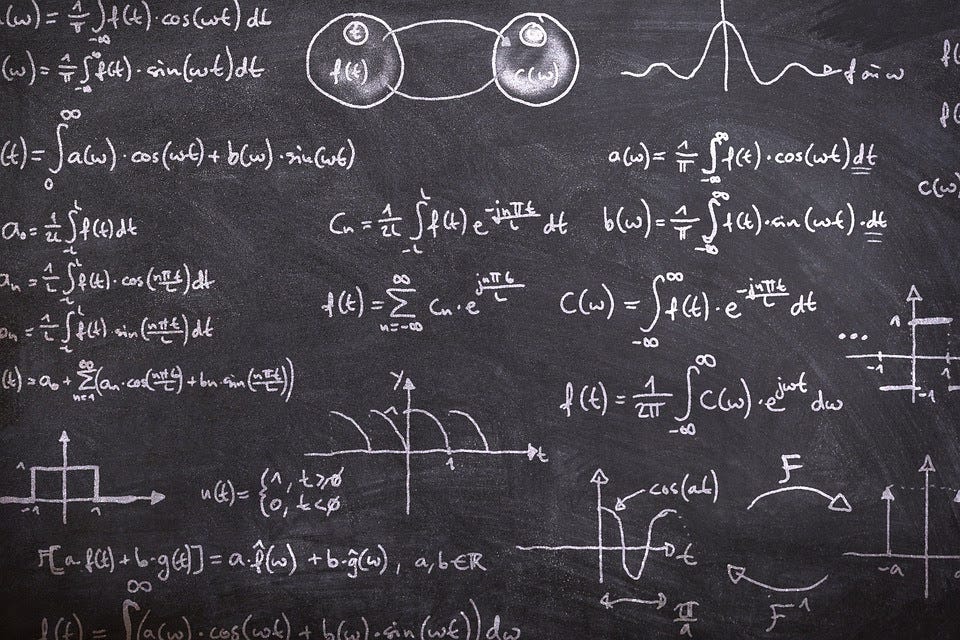 (ω) = 1/π ∫_{-∞}^{∞} f(t)·cos(ωt) dt
(ω) = 1/π ∫_{-∞}^{∞} f(t)·sin(ωt) dt
t
f(t)
C(ω)
f om ω
f(
f(
(t) = ∫_0^∞ a(ω)·cos(ωt) + b(ω)·sin(ωt)
a(ω) = 1/π ∫_{-∞}^{∞} f(t)·cos(ωt) dt
C(ω)
a₀ = 1/2L ∫_{-L}^{L} f(t) dt
Cn = 1/2L ∫_{-L}^{L} f(t) e^{-jnπt/L} dt
b(ω) = 1/π ∫_{-∞}^{∞} f(t)·sin(ωt)·dt
an = 1/L ∫_{-L}^{L} f(t)·cos(nπt/L) dt
f(t) = ∑_{n=-∞}^{∞} Cn·e^{jnπt/L}
C(ω) = ∫_{-∞}^{∞} f(t)·e^{-jnπt/L} dt
n = 1/L ∫_{-L}^{L} f(t)·sin(nπt/L) dt
1
...
-1
-1
1
(t) = a₀ + ∑_{n=1}^{∞} (an·cos(nπt/L) + bn·sin(nπt/L))
f(t) = 1/2π ∫_{-∞}^{∞} C(ω)·e^{jωt} dω
y
1
1
t
1
-1
1
u(t) = {1, t≥0
0, t<0
cos(at)
t
π/a
F
F⁻¹
-a
F[a·f(t) + b·g(t)] = a·f̂(ω) + b·ĝ(ω), a,b∈ℝ
f(t) = ∫^∞ (a(ω)·cos(ωt) + b(ω)·sin(ωt)) dω